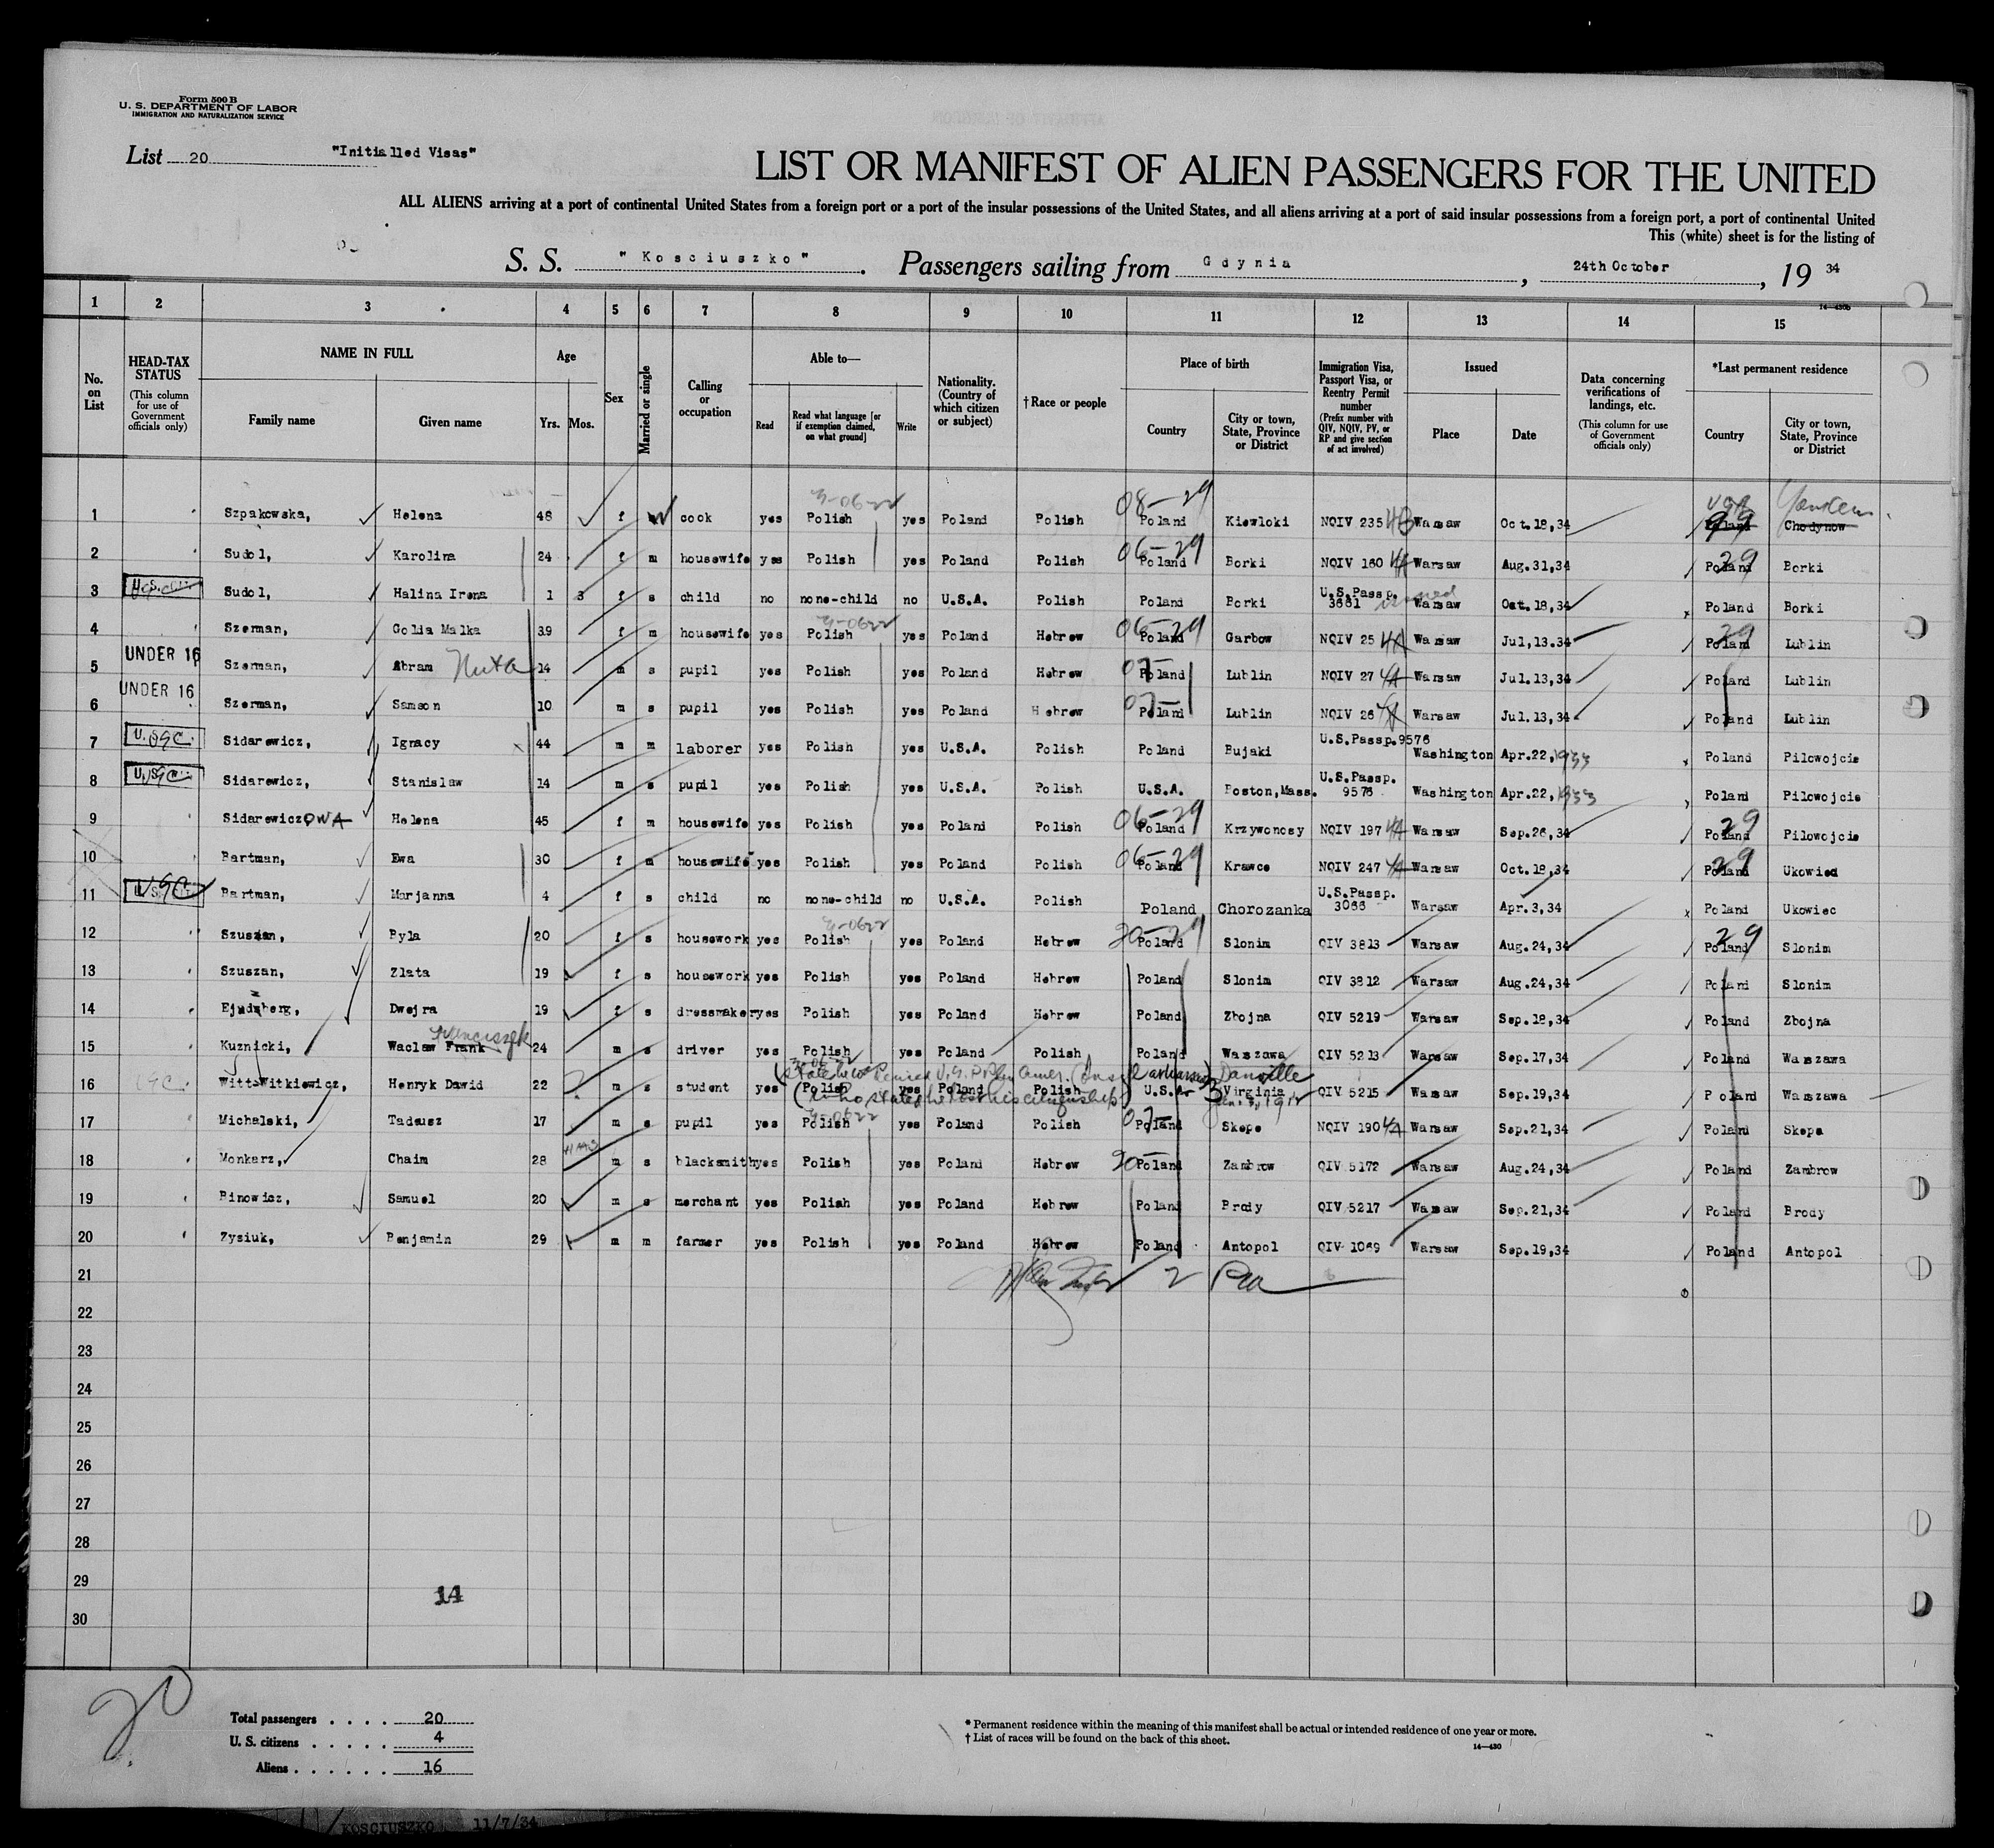 Form 500 B
U. S. DEPARTMENT OF LABOR
IMMIGRATION AND NATURALIZATION SERVICE
List 20 "Initialled Visas"
LIST OR MANIFEST OF ALIEN PASSENGERS FOR THE UNITED
ALL ALIENS arriving at a port of continental United States from a foreign port or a port of the insular possessions of the United States, and all aliens arriving at a port of said insular possessions from a foreign port, a port of continental United
This (white) sheet is for the listing of
S. S. "Kosciuszko". Passengers sailing from Gdynia, 24th October, 19 34
14—430b
1 2 3 4 5 6 7 8 9 10 11 12 13 14 15
No. on List
HEAD-TAX STATUS (This column for use of Government officials only)
NAME IN FULL Family name Given name
Age Yrs. Mos.
Sex
Married or single
Calling or occupation
Able to— Read Read what language [or if exemption claimed, on what ground] Write
Nationality. (Country of which citizen or subject)
†Race or people
Place of birth Country City or town, State, Province or District
Immigration Visa, Passport Visa, or Reentry Permit number (Prefix number with QIV, NQIV, PV, or RP and give section of act involved)
Issued Place Date
Data concerning verifications of landings, etc. (This column for use of Government officials only)
*Last permanent residence Country City or town, State, Province or District
1 Szpakowska, Helena 48 f w cook yes Polish yes Poland Polish 08-29 Poland Kiewloki NQIV 235 4B Warsaw Oct.18,34 Poland Chodynow
2 Sudol, Karolina 24 f m housewife yes Polish yes Poland Polish 06-29 Poland Borki NQIV 160 4A Warsaw Aug.31,34 Poland 29 Borki
3 Sudol, Halina Irena 1 3 f s child no none-child no U.S.A. Polish Poland Borki U.S.Passp. 3681 issued Warsaw Oct.18,34 Poland Borki
4 Szerman, Golda Malka 39 f m housewife yes Polish yes Poland Hebrew 06-29 Poland Garbow NQIV 25 4A Warsaw Jul,13.34 Poland 29 Lublin
UNDER 16
5 Szerman, Abram Nuta 14 m s pupil yes Polish yes Poland Hebrew 07- Poland Lublin NQIV 27 4A Warsaw Jul.13,34 Poland Lublin
UNDER 16
6 Szerman, Samson 10 m s pupil yes Polish yes Poland Hebrew 07- Poland Lublin NQIV 26 4A Warsaw Jul.13,34 Poland Lublin
7 USC Sidarewicz, Ignacy 44 m m laborer yes Polish yes U.S.A. Polish Poland Bujaki U.S.Passp.9576 Washington Apr.22,1933 Poland Pilowojcie
8 USC Sidarewicz, Stanislaw 14 m s pupil yes Polish yes U.S.A. Polish U.S.A. Boston,Mass. U.S.Passp. 9576 Washington Apr.22,1933 Poland Pilowojcie
9 SidarewiczOWA Helena 45 f m housewife yes Polish yes Poland Polish 06-29 Poland Krzywonosy NQIV 197 4A Warsaw Sep.26,34 Poland 29 Pilowojcie
10 Bartman, Ewa 30 f m housewife yes Polish yes Poland Polish 06-29 Poland Krawce NQIV 247 4A Warsaw Oct.18,34 Poland 29 Ukowied
11 USC Bartman, Marjanna 4 f s child no none-child no U.S.A. Polish Poland Chorozanka U.S.Passp. 3066 Warsaw Apr.3,34 Poland Ukowiec
12 Szuszan, Byla 20 f s housework yes Polish yes Poland Hebrew 20-29 Poland Slonim QIV 3813 Warsaw Aug.24,34 Poland 29 Slonim
13 Szuszan, Zlata 19 f s housework yes Polish yes Poland Hebrew Poland Slonim QIV 3812 Warsaw Aug.24,34 Poland Slonim
14 Ejudzberg, Dwejra 19 f s dressmaker yes Polish yes Poland Hebrew Poland Zbojna QIV 5219 Warsaw Sep.18,34 Poland Zbojna
15 Kuznicki, Waclaw Frank Franciszek 24 m s driver yes Polish yes Poland Polish Poland Warszawa QIV 5213 Warsaw Sep.17,34 Poland Warszawa
16 Witt-Witkiewicz, Henryk Dawid 22 m s student yes Polish yes Poland Polish U.S.A. Danville Virginia QIV 5215 Warsaw Sep.19,34 Poland Warszawa
17 Michalski, Tadeusz 17 m s pupil yes Polish yes Poland Polish 07- Poland Skepe NQIV 190 4A Warsaw Sep.21,34 Poland Skepe
18 Monkarz, Chaim 28 m s blacksmith yes Polish yes Poland Hebrew 20- Poland Zambrow QIV 5172 Warsaw Aug.24,34 Poland Zambrow
19 Binowicz, Samuel 20 m s merchant yes Polish yes Poland Hebrew Poland Brody QIV 5217 Warsaw Sep.21,34 Poland Brody
20 Zysiuk, Benjamin 29 m m farmer yes Polish yes Poland Hebrew Poland Antopol QIV 1069 Warsaw Sep.19,34 Poland Antopol
21
22
23
24
25
26
27
28
29
30
14
20
Total passengers . . . . 20
U. S. citizens . . . . . 4
Aliens . . . . . . 16
* Permanent residence within the meaning of this manifest shall be actual or intended residence of one year or more.
† List of races will be found on the back of this sheet.
14—430
KOSCIUSZKO 11/7/34